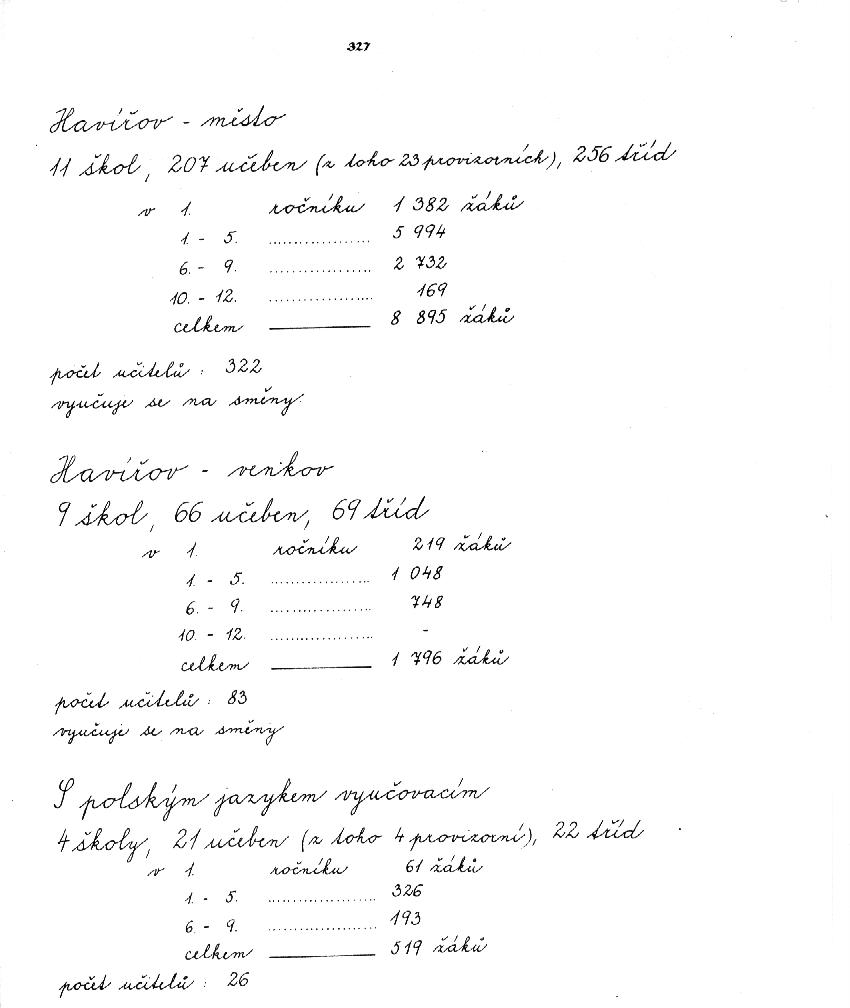 327
Havířov - město
11 škol, 207 učeben (z toho 23 provizorních), 256 tříd
v 1. ročníku 1 382 žáků
1. - 5. ................... 5 994
6. - 9. ................... 2 732
10. - 12. ................... 169
celkem ________ 8 895 žáků
počet učitelů : 322
vyučuje se na směny.
Havířov - venkov
9 škol, 66 učeben, 69 tříd
v 1. ročníku 219 žáků
1. - 5. ................... 1 048
6. - 9. ................... 748
10. - 12. ................... -
celkem ________ 1 796 žáků
počet učitelů : 83
vyučuje se na směny
S polským jazykem vyučovacím
4 školy, 21 učeben (z toho 4 provizorní), 22 tříd
v 1. ročníku 61 žáků
1. - 5. ................... 326
6. - 9. ................... 193
celkem ________ 519 žáků
počet učitelů : 26